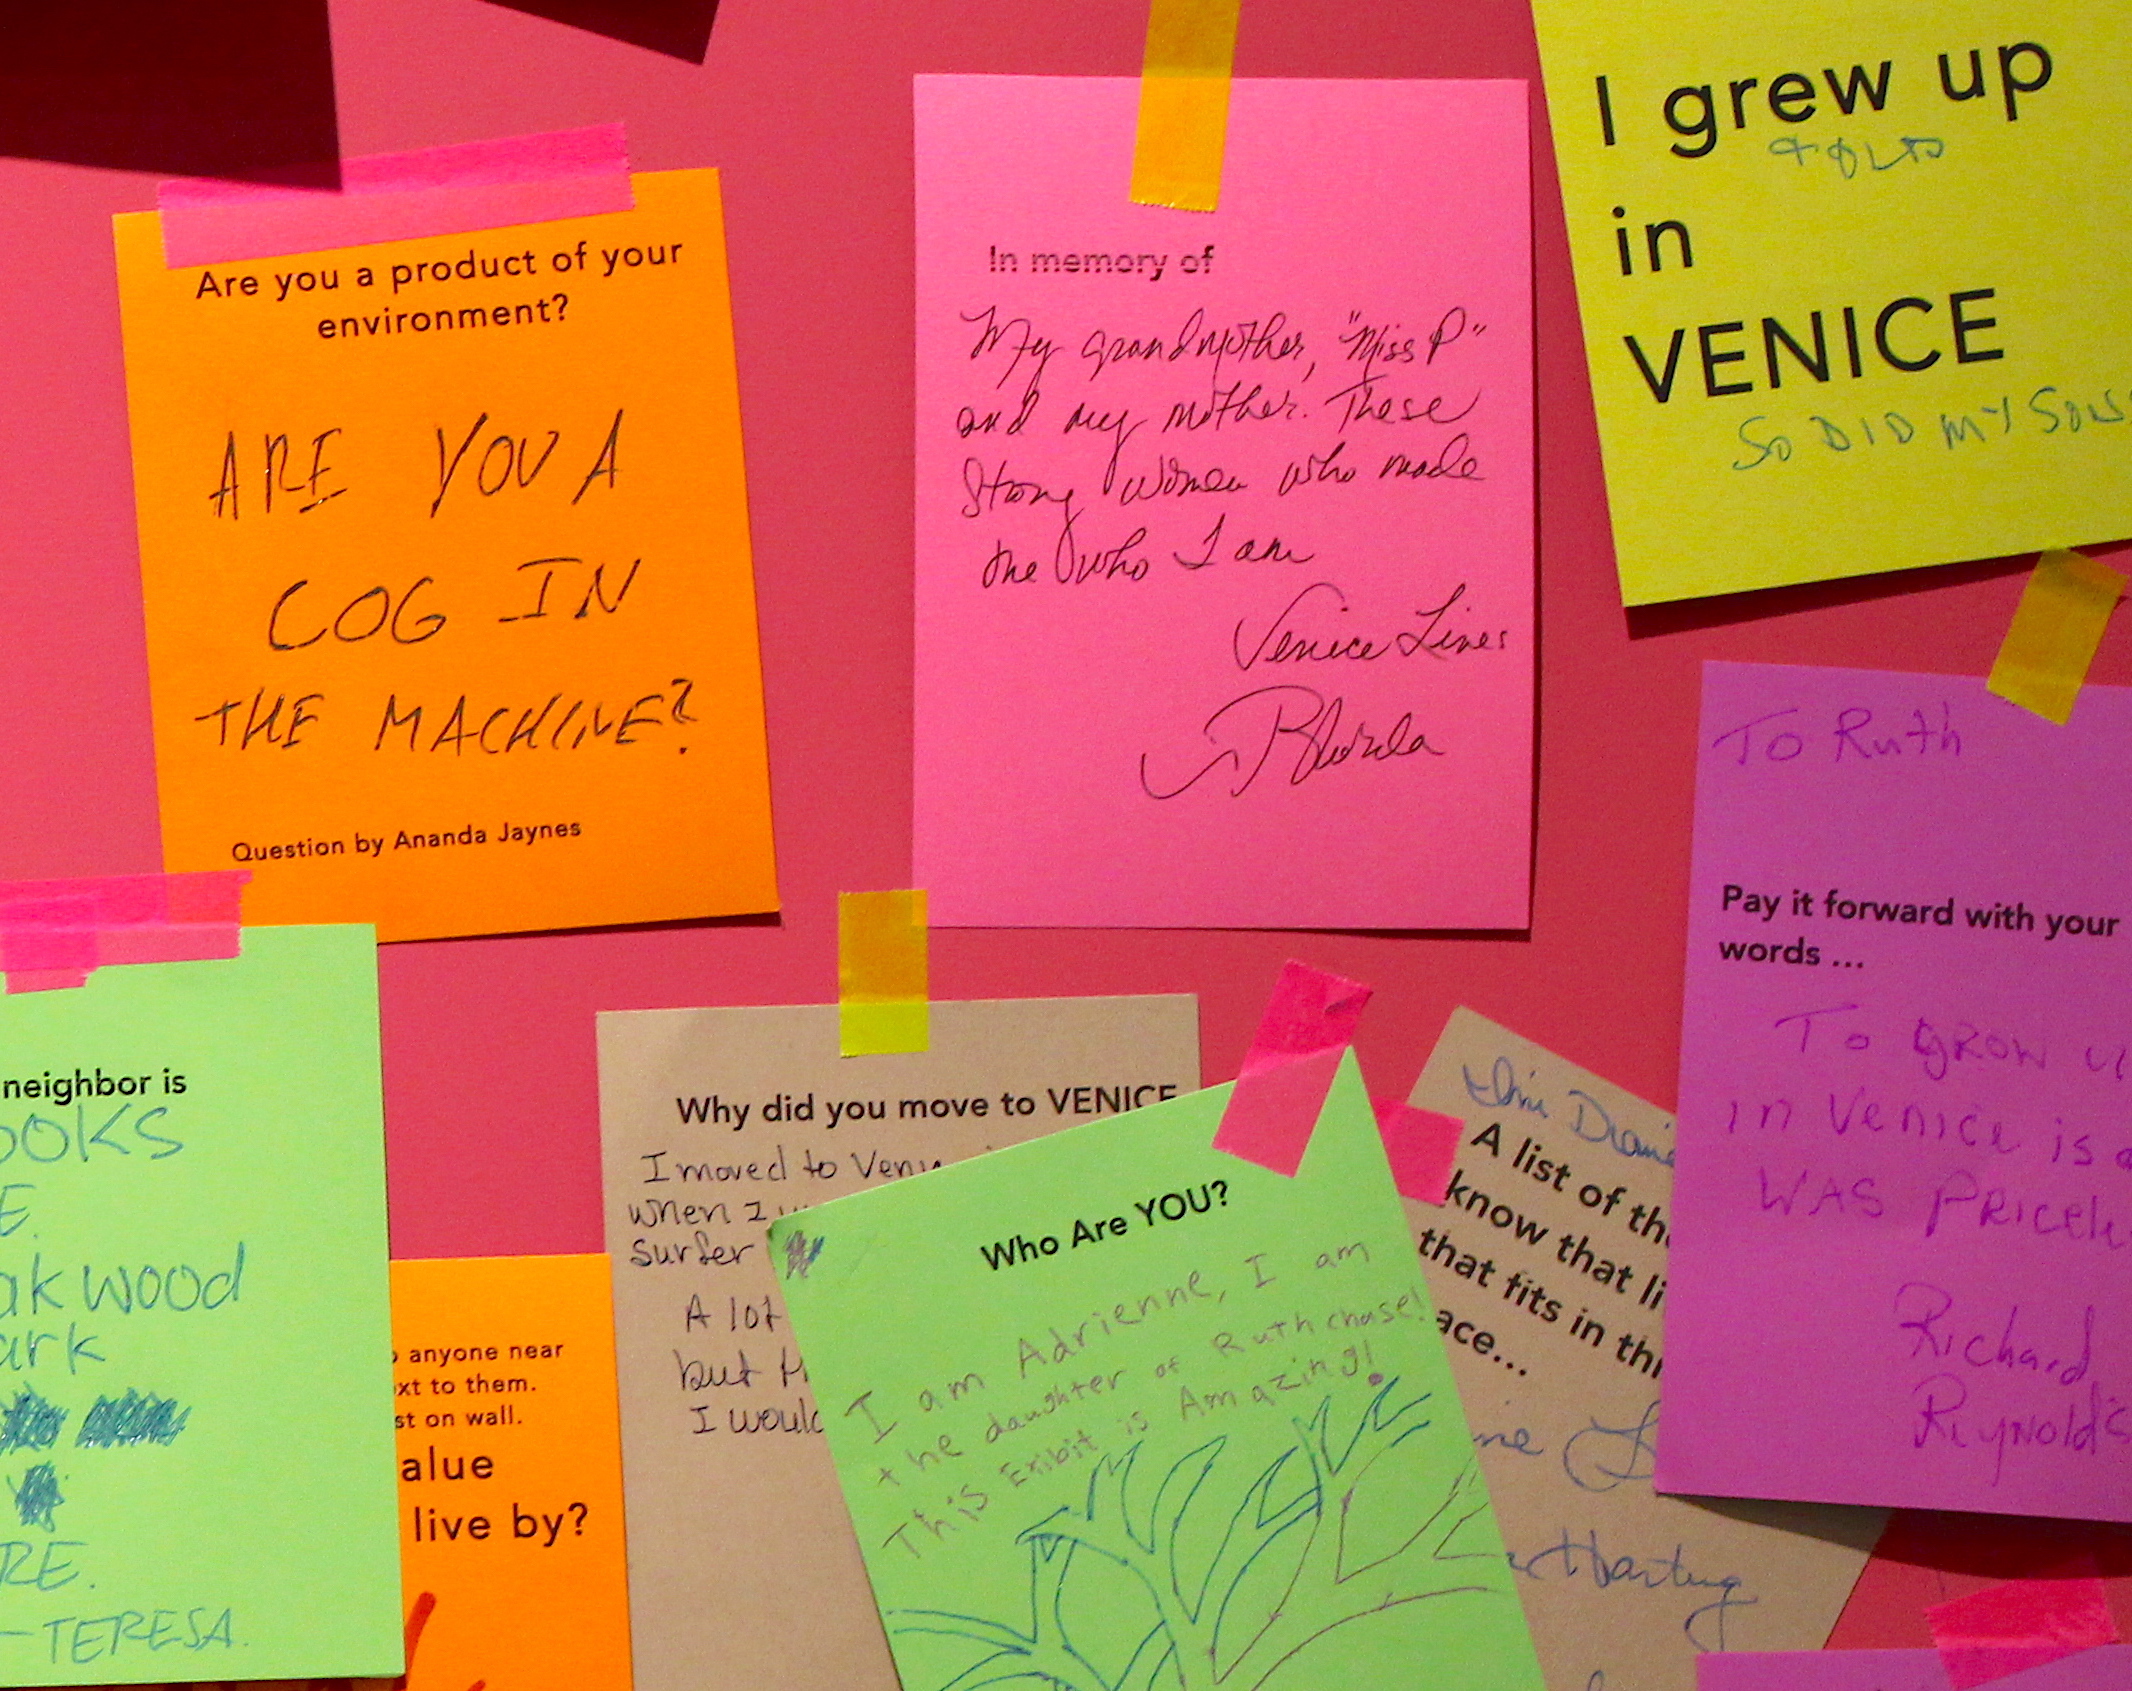 Are you a product of your
environment?
ARE YOU A
COG IN
THE MACHINE?
Question by Ananda Jaynes
In memory of
My grandmother, "Miss P"
and my mother. These
Strong women who made
me who I am
Venice Lives
I grew up
in
VENICE
SO DID MY SONS
To Ruth
Pay it forward with your
words ...
To grow
in Venice is
WAS Pricele
Richard
Reynolds
neighbor is
OOKS
E.
akwood
ark
RE.
-TERESA.
anyone near
xt to them.
st on wall.
alue
live by?
Why did you move to VENICE
I moved to Veni
when I
surfer
A lot
but
I would
Who Are YOU?
I am Adrienne, I am
the daughter of Ruth chase!
This Exibit is Amazing!
A list of th
know that li
that fits in thi
ace...
ne
Hartung